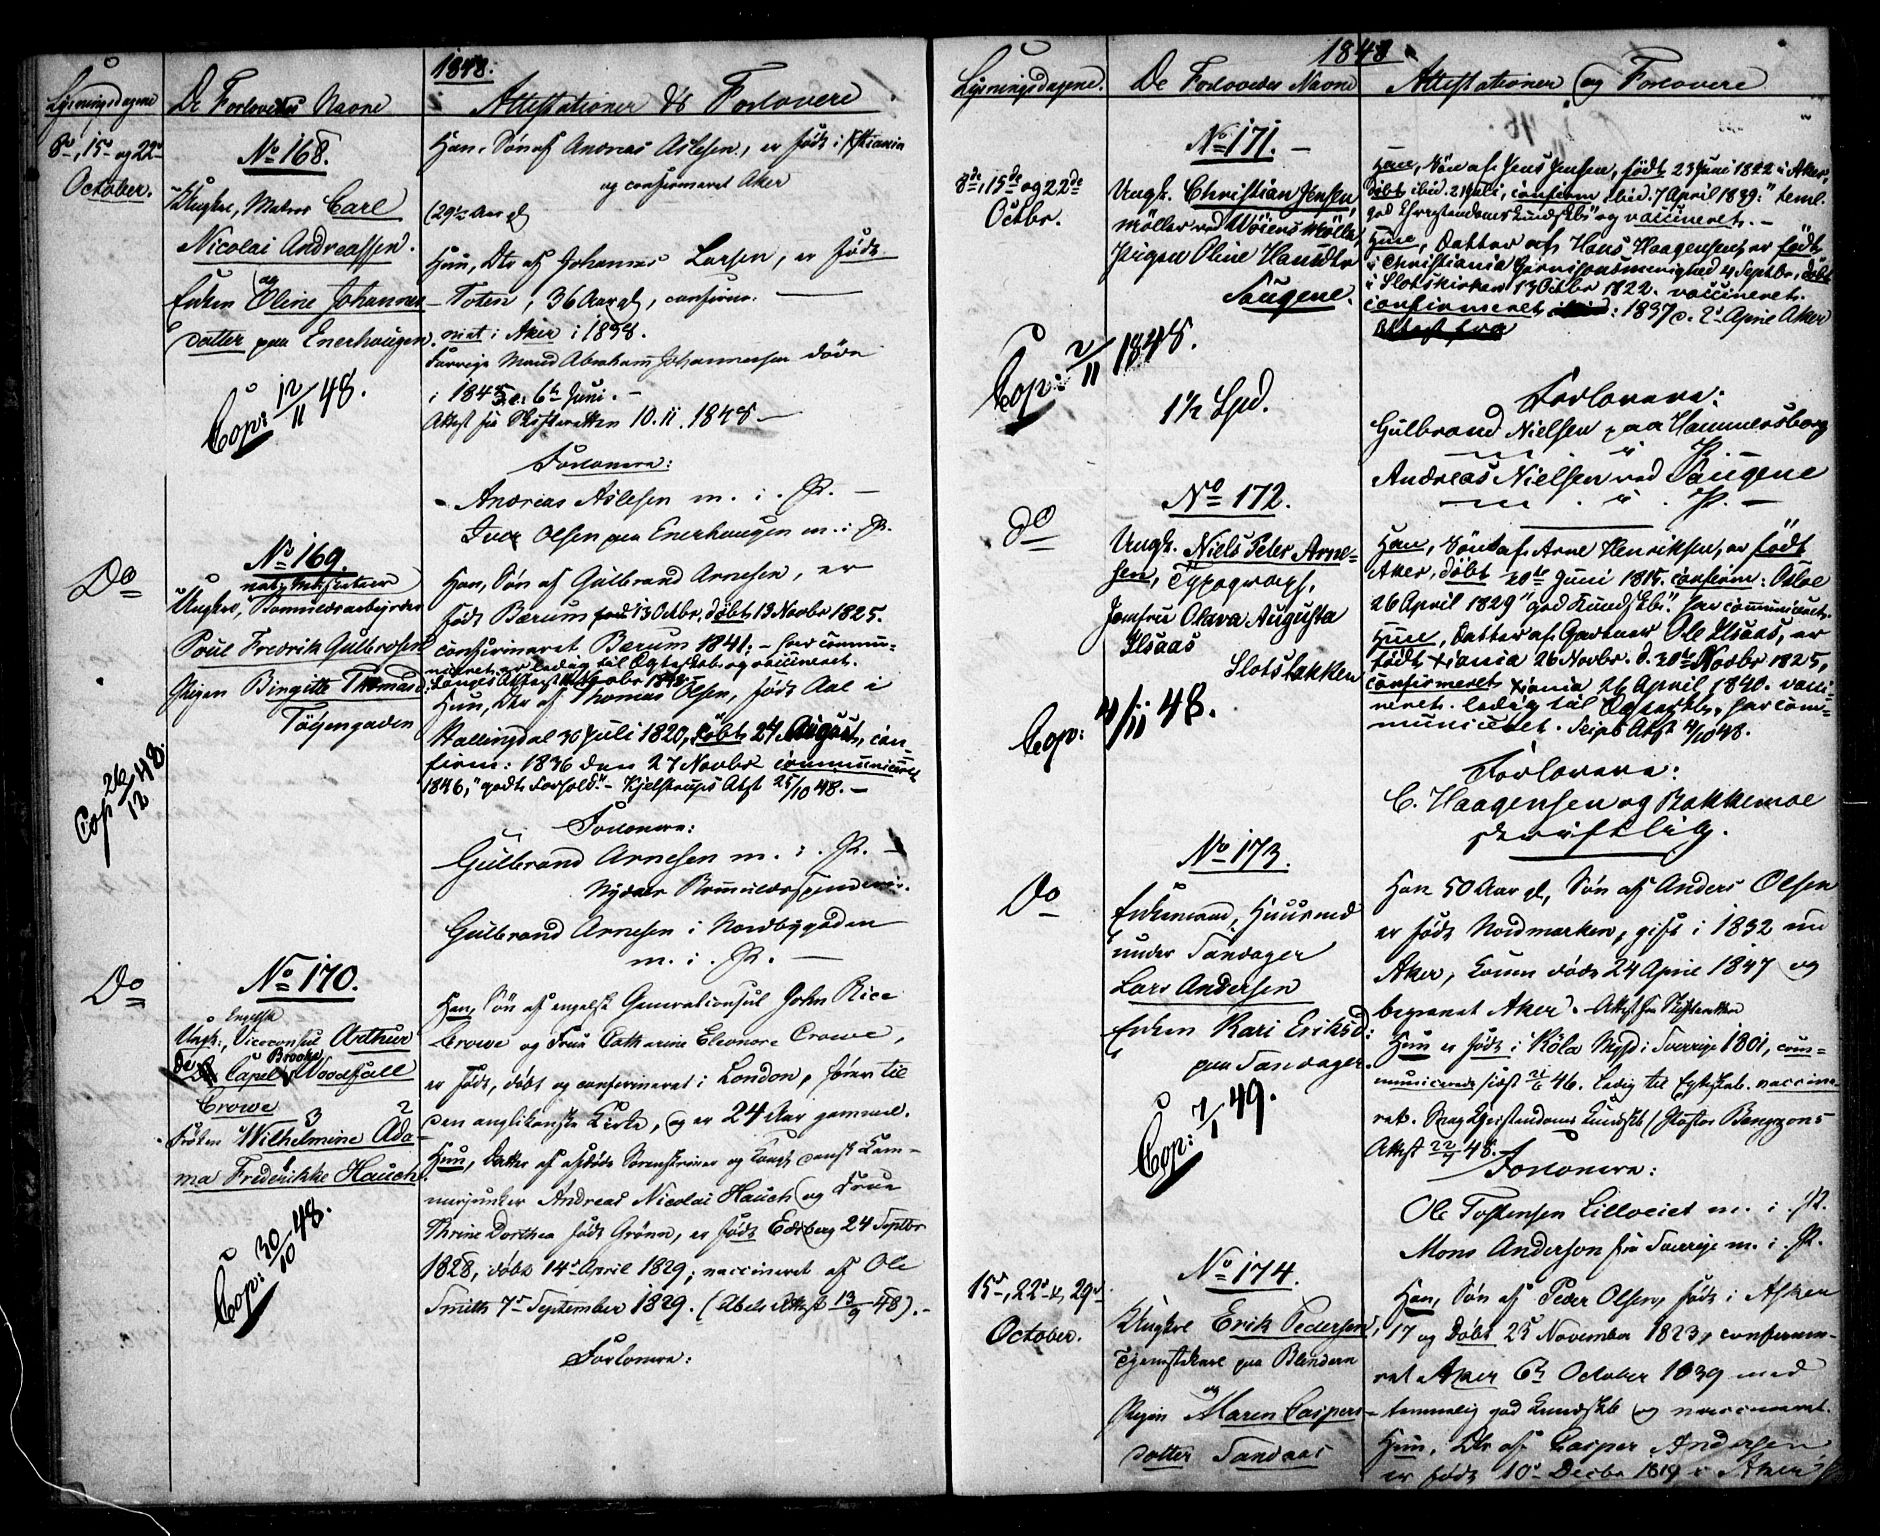 1848.
Lysningsdagene
De Forlovedes Navne
Attestationer & Forlovere
8de, 15de og 22de
October.
No 168.
Ungkl, Matros Carl
Nicolai Andreassen
og
Enken Oline Johannes
datter paa Enerhaugen.
Cop: 12/11 48.
Han, Søn af Andreas Aslesen, er født i Xstiania
og confirmeret Aker
(29 1/2 Aar gl)
Hun, Dtr af Johannes Larsen, er født
Toten, 36 Aar gl, confirme-
ret i Aker i 1838.
Forrige Mand Abraham Johannessen døde
i 1845 6te Juni. -
Attest fra Skifteretten 10.11.1848 -
Forlovere:
- Andreas Aslesen m. i. P. -
Iver Olsen paa Enerhaugen m. i. P.
Do
No 169.
Ungkl, Bomuldsarbeider
Poul Fredrik Gulbrandsen
Pigen Birgitte Thomasd.
Tøigengaden
Cop 26/12 48
Han, Søn af Gulbrand Arnesen, er
født Bærum 13 Octbr, døbt 13 Novbr 1825.
confirmeret Bærum 1841; - har commu-
niceret, er ledig til Ægteskab og vaccineret.
Hun, Dtr af Thomas Olsen, født Aal i
Hallingdal 30 Juli 1820, døbt 24 August, con-
firm: 1836 den 27 Novbr communiceret
1846, "godt Forhold" - Kjelstrups Atst 25/10 48. -
Forlovere:
Gulbrand Arnesen m. i. P. -
Nydalens Bomuldsspinderi.
Gulbrand Arnesen i Nordbygaden
m. i. P. -
Do
No 170.
Engelsk
Ungk:, Viceconsul Arthur
de Capel Brooke Woodfall
Crowe
3 2
Frøken Wilhelmine Ada-
1
ma Frederikke Hauch
Cop: 30/10 48.
Han, Søn af engelsk Generalconsul John Rice
Crowe og Frue Catharine Eleonore Crowe,
er født, døbt og confirmeret i London, hører til
den anglikanske Kirke, og er 24 Aar gammel.
Hun, Datter af afdøde Sorenskriver og Kongl dansk Kam-
merjunker Andreas Nicolai Hauch og Frue
Thrine Dorthea født Grønn, er født Edsberg 24 Septbr
1828, døbt 14de April 1829; vaccineret af Ole
Smith 7de September 1829. (Abels Attest 13/9 48). -
Forlovere:
1848
Lysningsdagene.
De Forlovedes Navne
Attestationer og Forlovere
8de, 15de og 22de
Octbr.
No 171. -
Ungk. Christian Jensen,
Møller ved Vøiens Mølle,
Pigen Oline Hansdtr
Saugene.
Cop: 2/11 1848.
1 1/2 Spd.
Han, Søn af Jens Jensen, født 23 Juni 1822 i Aker,
døbt ibid. 21 Juli, confirm ibid. 7 April 1839: "teml.
god Chrstendomskundskb" og vaccineret. -
Hun, Datter af Hans Haagensen, er født
i Christiania Garnisonsmenighed 4 Septbr, døbt
i Slotskirken 13 Octbr 1822. vaccineret.
confirmeret 1837 d. 2den April Aker
Forlovere:
Gulbrand Nielsen paa Hammersborg
m. i. P.
Andreas Nielsen ved Saugene
m. i. P. -
do
No 172.
Ungk. Niels Peter Arne-
sen, Typograph,
Jomfru Olava Augusta
Ilsaas
Slotsbakken
Cop: 4/11 48.
Han, Søn af Arne Henriksen, er født
Aker, døbt 20de Juni 1815. confirm: Oslo
26 April 1829 "god Kundskb." har communiceret.
Hun, Datter af Gartner Ole Ilsaas, er
født Xiania 26 Novbr. d. 30te Novbr 1825,
confirmeret Xiania 26 April 1840. vacci-
neret. ledig til Ægteskb, har com-
municeret. Atst 4/10 48.
Forlovere:
C. Haagensen og Bakkemoe
skriftlig.
Do
No 173.
Enkemand, Huusmd
under Sandager
Lars Andersen
Enken Kari Eriksd:
paa Sandager.
Cop: 7/1 49.
Han 50 Aar gl, Søn af Anders Olsen
er født Nordmarken, gift i 1832 m
Aker, Konen døde 24 April 1847 og
begravet Aker. - Attest fra Skifteretten
Hun er født i Köla i Sverrige 1801, com-
municerede sidst 21/6 46. Ledig til Egteskab. vaccine-
ret. Christendoms Kundskb (Pastor
Attest 22/9 48.
Forlovere:
Ole Tostensen Lilloeiet m. i. P.
Mons Anderson fra Sverrige m. i. P.
15de, 22de & 29de
October.
No 174.
Ungkl Erik Pedersen,
Tjenestekarl paa Blindern
og
Pigen Maren Caspers-
datter Sandaas
Han, Søn af Peder Olsen, født i Asker
17 og døbt 25 November 1823, confirme-
ret Aker 6te October 1839 med
temmelig god Kundskb og vaccineret.
Hun, Dtr af Casper Andersen
er født 10de Decbr 1819 i Aker